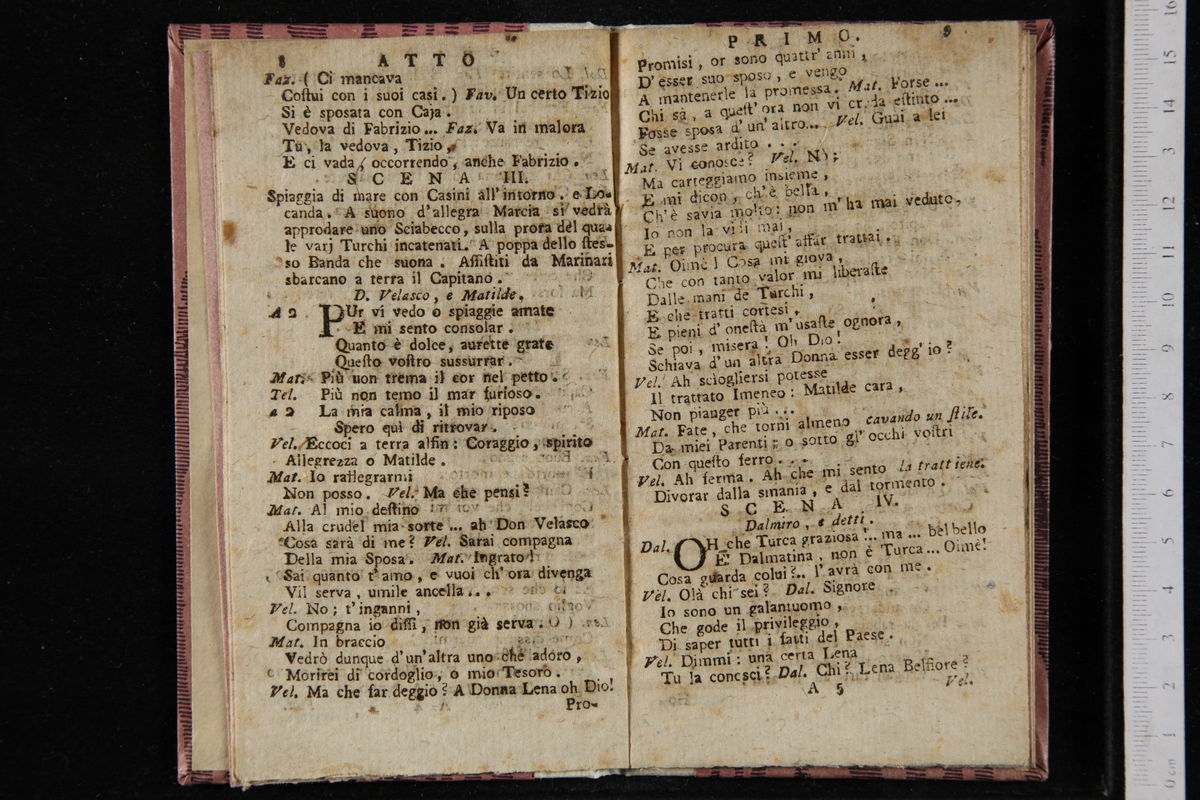 8 ATTO
Faz. ( Ci mancava
Coſtui con i suoi casi. ) Fav. Un certo Tizio
Si è sposata con Caja .
Vedova di Fabrizio ... Faz. Va in malora
Tu, la vedova, Tizio,
E ci vada, occorrendo, anche Fabrizio .
SCENA III.
Spiaggia di mare con Casini all'intorno. e Lo-
canda. A suono d'allegra Marcia si vedrà
approdare uno Sciabecco, sulla prora del qua-
le varj Turchi incatenati. A poppa dello ſtes-
so Banda che suona. Aſſiſtiti da Marinari
sbarcano a terra il Capitano .
D. Velasco, e Matilde.
a 2 PUr vi vedo o spiagge amate
E mi sento consolar .
Quanto è dolce, aurette grate
Queſto voſtro sussurrar .
Mat. Più uon trema il cor nel petto .
Tel. Più non temo il mar furioso.
a 2 La mia calma, il mio riposo
Spero quì di ritrovar.
Vel. Eccoci a terra alfin: Coraggio, spirito
Allegrezza o Matilde .
Mat. Io rallegrarmi
Non posso. Vel. Ma che pensi?
Mat. Al mio deſtino
Alla crudel mia sorte ... ah Don Velasco
Cosa sarà di me? Vel. Sarai compagna
Della mia Sposa. Mat. Ingrato!
Sai quanto t'amo, e vuoi ch'ora divenga
Vil serva, umile ancella...
Vel. No; t'inganni,
Compagna io diſſi, non già serva .
Mat. In braccio
Vedrò dunque d'un'altra uno che adoro,
Morirei di cordoglio, o mio Tesoro.
Vel. Ma che far deggio? A Donna Lena oh Dio!
Pro-
PRIMO. 9
Promisi, or sono quattr' anni,
D'esser suo sposo, e vengo
A mantenerle la promessa. Mat. Forse ...
Chi sà, a queſt'ora non vi creda eſtinto ...
Fosse sposa d'un'altro... Vel. Guai a lei
Se avesse ardito . . .
Mat. Vi conosce? Vel. Nò;
Ma carteggiamo insieme,
E mi dicon, ch'è bella,
Ch'è savia molto: non m'ha mai veduto,
Io non la vidi mai,
E per procura queſt'affar trattai .
Mat. Oimè! Cosa mi giova,
Che con tanto valor mi liberaſte
Dalle mani de Turchi,
E che tratti cortesi,
E pieni d'oneſtà m'usaſte ognora,
Se poi, misera! Oh Dio!
Schiava d'un altra Donna esser degg'io?
Vel. Ah sciogliersi potesse
Il trattato Imeneo: Matilde cara,
Non pianger più ...
Mat. Fate, che torni almeno cavando un ſtile.
Da miei Parenti: o sotto gl'occhi voſtri
Con queſto ferro . . .
Vel. Ah ferma. Ah che mi sento la trattiene.
Divorar dalla smania, e dal tormento .
SCENA IV.
Dalmiro, e detti .
Dal. OH che Turca graziosa!.. ma ... bel bello
E' Dalmatina, non è Turca... Oimè!
Cosa guarda colui?.. l'avrà con me .
Vel. Olà chi sei? Dal. Signore
Io sono un galantuomo,
Che gode il privileggio,
Di saper tutti i fatti del Paese .
Vel. Dimmi: una certa Lena
Tu la conosci? Dal. Chi? Lena Belfiore?
A 5 Vel.